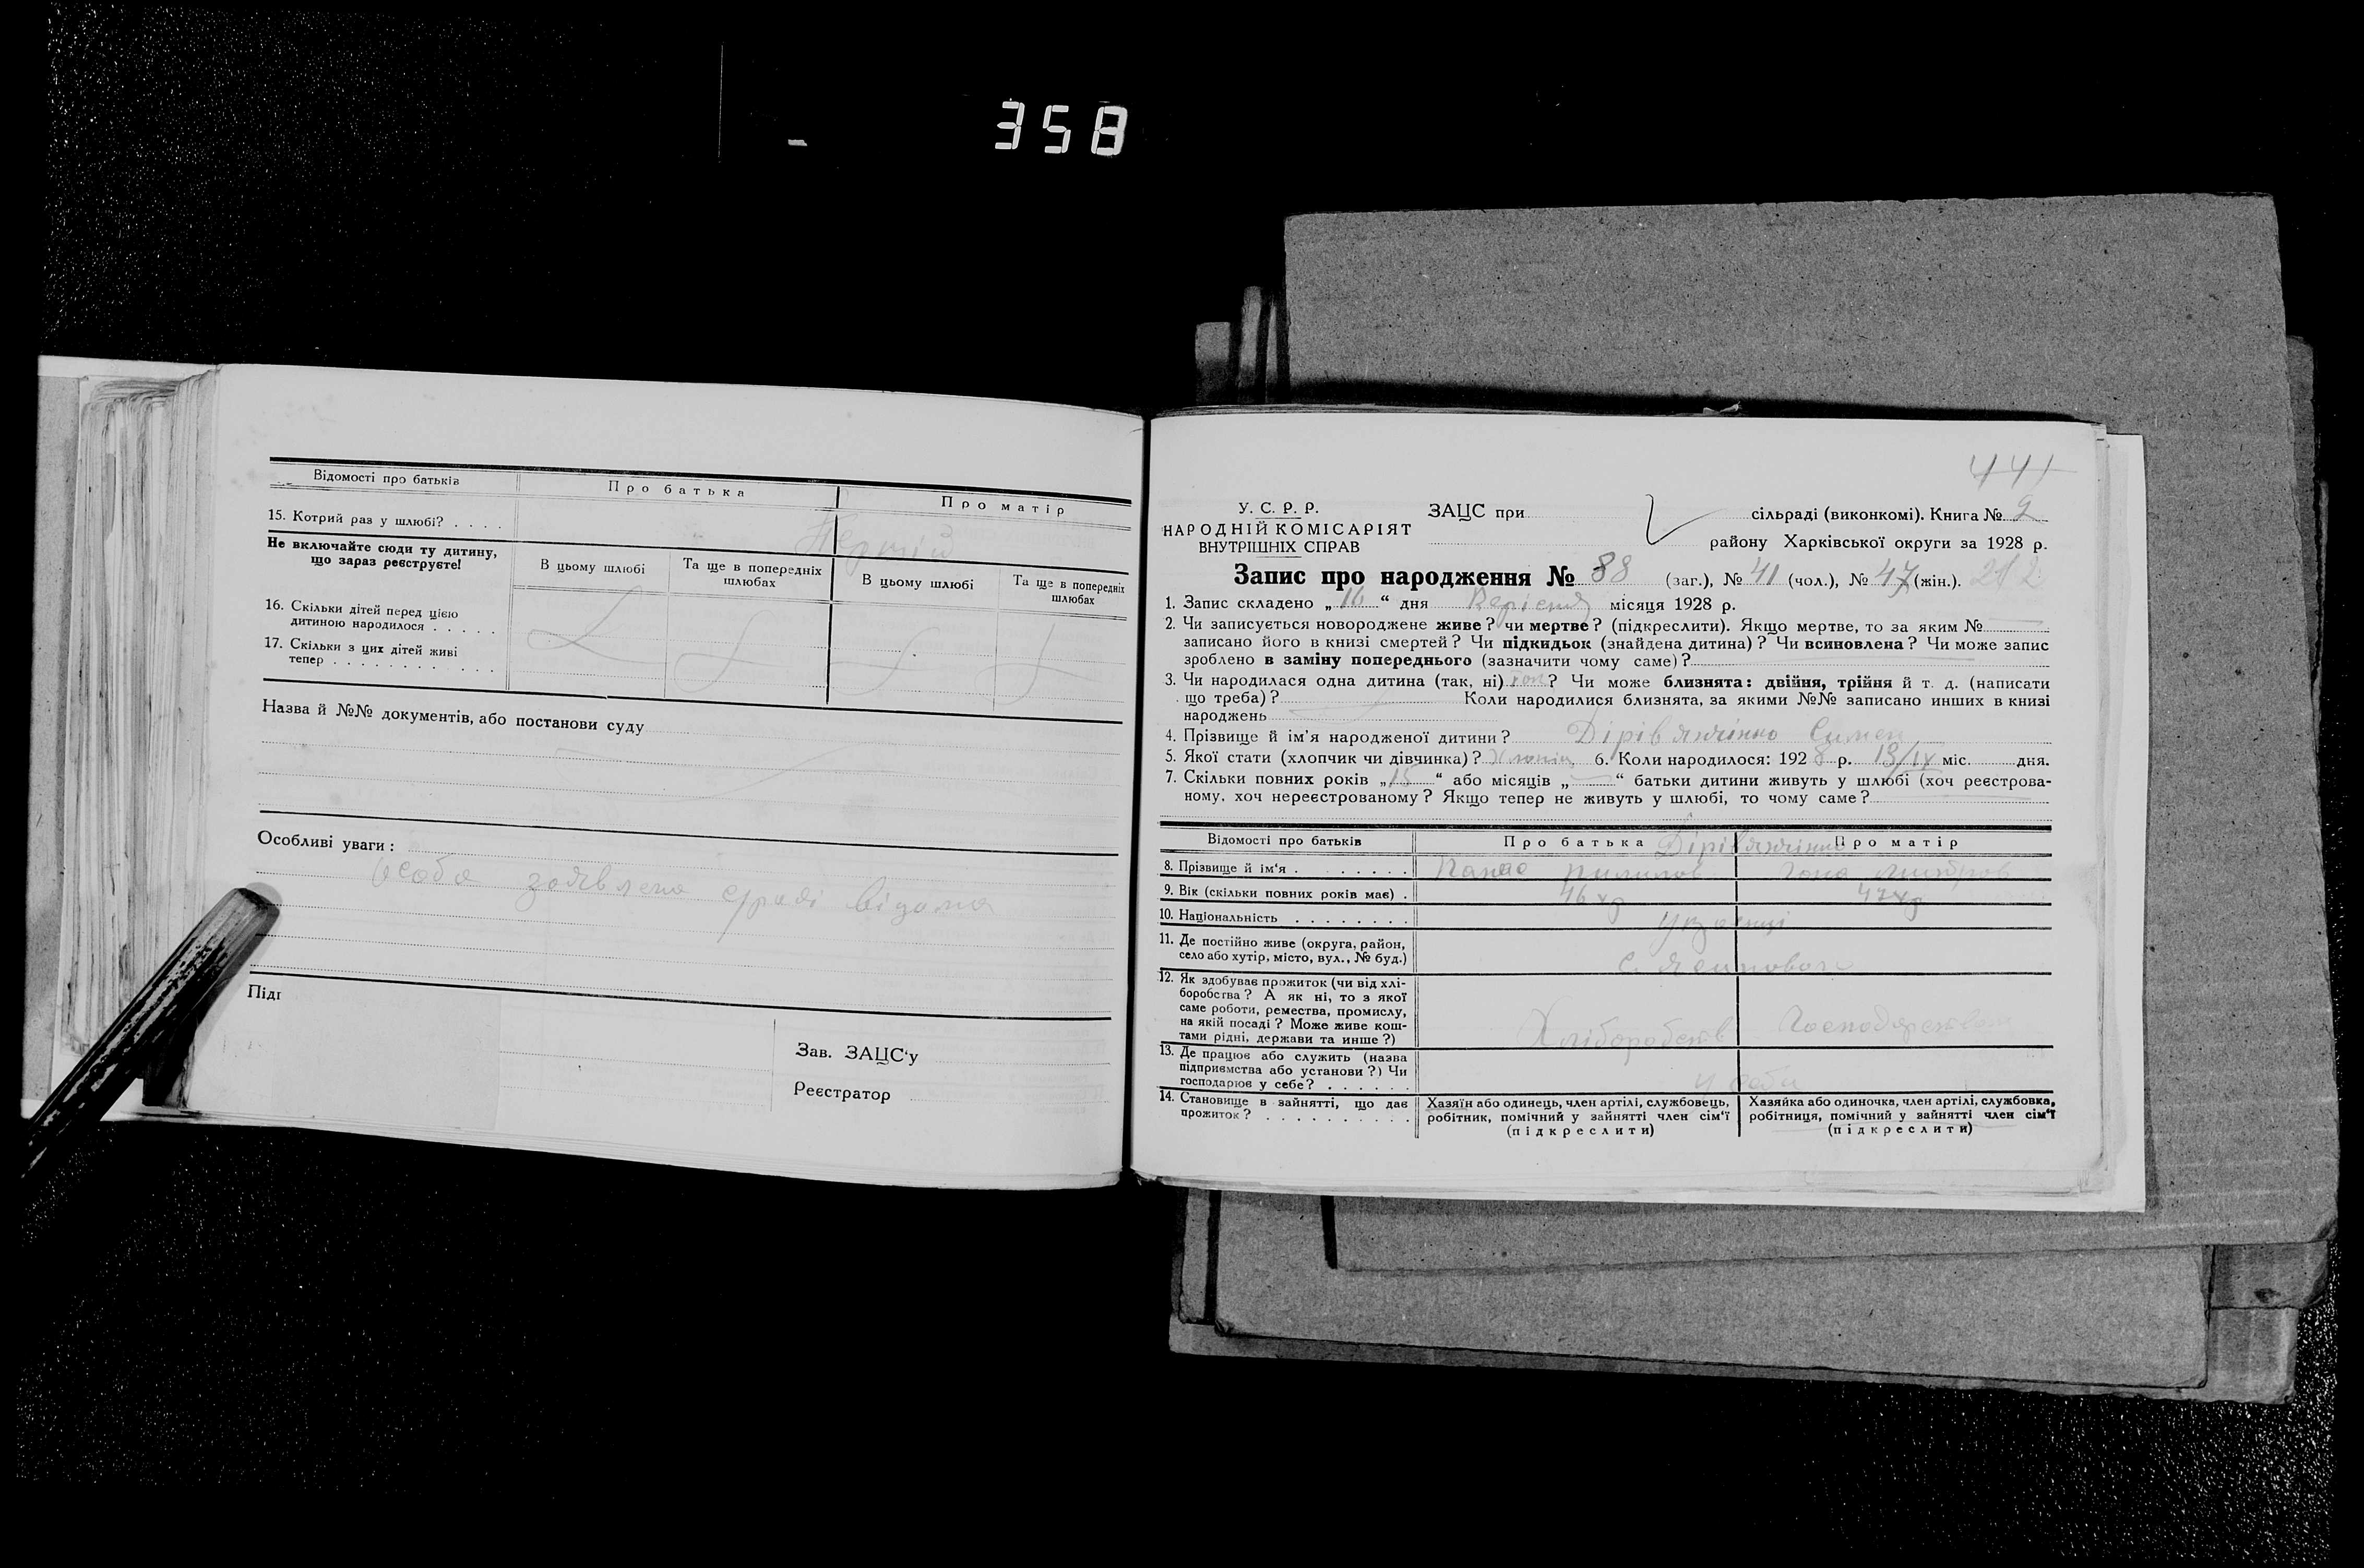 358
Відомості про батьків
Про батька
Про матір
15. Котрий раз у шлюбі? . . . .
Перший
Не включайте сюди ту дитину,
що зараз реєструєте!
В цьому шлюбі
Та ще в попередніх
шлюбах
В цьому шлюбі
Та ще в попередніх
шлюбах
16. Скільки дітей перед цією
дитиною народилося . . . . .
17. Скільки з цих дітей живі
тепер . . . . . . . . . . .
Назва й №№ документів, або постанови суду
Особливі уваги:
особа заявлена сраді відома
Підг
Зав. ЗАЦС'у
Реєстратор
441
У. С. Р. Р.
НАРОДНІЙ КОМІСАРІЯТ
ВНУТРІШНІХ СПРАВ
ЗАЦС при
сільраді (виконкомі). Книга № 2
району Харківської округи за 1928 р.
Запис про народження № 88 (заг.), № 41 (чол.), № 47 (жін.). 212
1. Запис складено „16“ дня Вересня місяця 1928 р.
2. Чи записується новороджене живе? чи мертве? (підкреслити). Якщо мертве, то за яким №
записано його в книзі смертей? Чи підкидьок (знайдена дитина)? Чи всиновлена? Чи може запис
зроблено в заміну попереднього (зазначити чому саме)?
3. Чи народилася одна дитина (так, ні) ? Чи може близнята: двійня, трійня й т. д. (написати
що треба)? Коли народилися близнята, за якими №№ записано инших в книзі
народжень
4. Прізвище й ім'я народженої дитини? Дірів'янченко Симен
5. Якої стати (хлопчик чи дівчинка)? Хлопч. 6. Коли народилося: 1928 р. 13/IX міс. дня.
7. Скільки повних років „15“ або місяців „ “ батьки дитини живуть у шлюбі (хоч реєстрова-
ному, хоч нереєстрованому? Якщо тепер не живуть у шлюбі, то чому саме?
Відомості про батьків
Про батька
Про матір
8. Прізвище й ім'я . . . . . . . .
Панас Пилипов
9. Вік (скільки повних років має) .
46 хр
47 хр
10. Національність . . . . . . . .
Українці
11. Де постійно живе (округа, район,
село або хутір, місто, вул., № буд.)
с.
12. Як здобуває прожиток (чи від хлі-
боробства? А як ні, то з якої
саме роботи, ремества, промислу,
на якій посаді? Може живе кош-
тами рідні, держави та инше?)
Хліборобств
Господарством
13. Де працює або служить (назва
підприємства або установи?) Чи
господарює у себе? . . . . . .
у себе
14. Становище в зайнятті, що дає
прожиток? . . . . . . . . . .
Хазяїн або одинець, член артілі, службовець,
робітник, помічний у зайнятті член сім'ї
(підкреслити)
Хазяйка або одиночка, член артілі, службовка,
робітниця, помічний у зайнятті член сім'ї
(підкреслити)